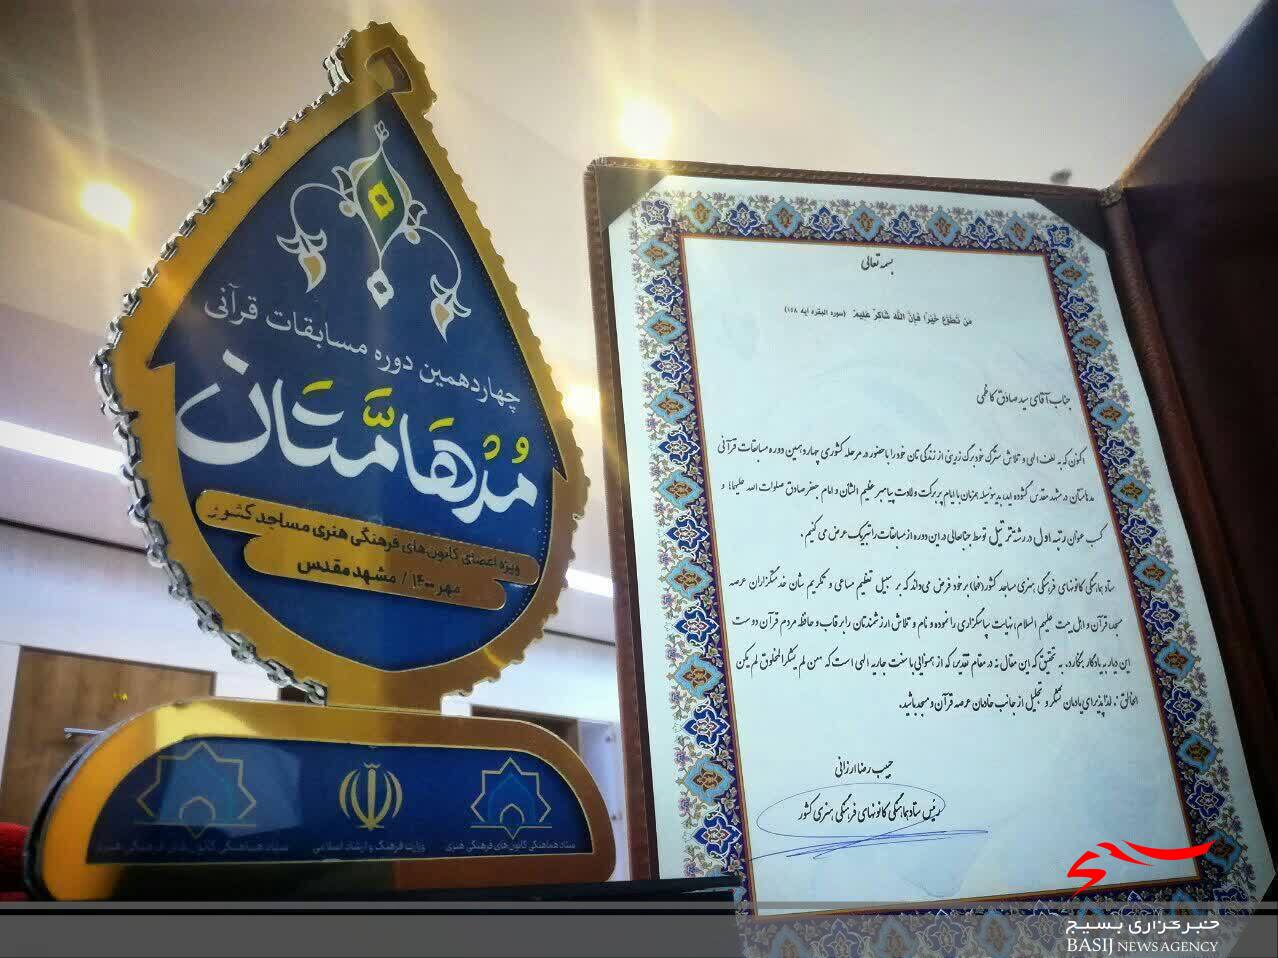 چهاردهمین دوره مسابقات قرآنی
مُدْهَامَّتَان
ویژه اعضای کانون‌های فرهنگی هنری مساجد کشور
مهر ۱۴۰۰ / مشهد مقدس
ستاد هماهنگی کانون‌های فرهنگی هنری
وزارت فرهنگ و ارشاد اسلامی
ستاد هماهنگی کانون‌های فرهنگی هنری
بسمه تعالی
مَن تَطَوَّعَ خَیْرًا فَإِنَّ اللَّهَ شَاکِرٌ عَلِیمٌ (سوره البقره آیه ۱۵۸)
جناب آقای سید صادق کاظمی
اکنون که به لطف الهی و تلاش سترگ خود برگ زرینی از زندگی تان خود را با حضور در مرحله کشوری چهاردهمین دوره مسابقات قرآنی
مدهامتان در مشهد مقدس گشوده اید، بدینوسیله همزمان با ایام پر برکت ولادت پیامبر عظیم الشان و امام جعفر صادق صلوات الله علیهما و
کسب عنوان رتبه اول در رشته ترتیل توسط جنابعالی در این دوره از مسابقات را تبریک عرض می کنیم .
ستاد هماهنگی کانونهای فرهنگی هنری مساجد کشور (فها) بر خود فرض می‌داند که بر سبیل تعظیم مساعی و تکریم شان خدمتگزاران عرصه
مسجد، قرآن و اهل بیت علیهم السلام، نهایت سپاسگزاری را نموده و نام و تلاش ارزشمندتان را بر قاب و حافظه مردم قرآن دوست
این دیار به یادگار بگذارد. به تحقیق که این مقال نه در مقام تقدیر که از همنوایی با سنت جاریه الهی است که "من لم یشکر المخلوق لم یکن
الخالق". لذا پذیرای یادمان تشکر و تجلیل از جانب خادمان عرصه قرآن و مسجد باشید.
حبیب رضا ارزانی
رئیس ستاد هماهنگی کانونهای فرهنگی هنری کشور
بسیج
خبرگزاری بسیج
BASIJ NEWS AGENCY